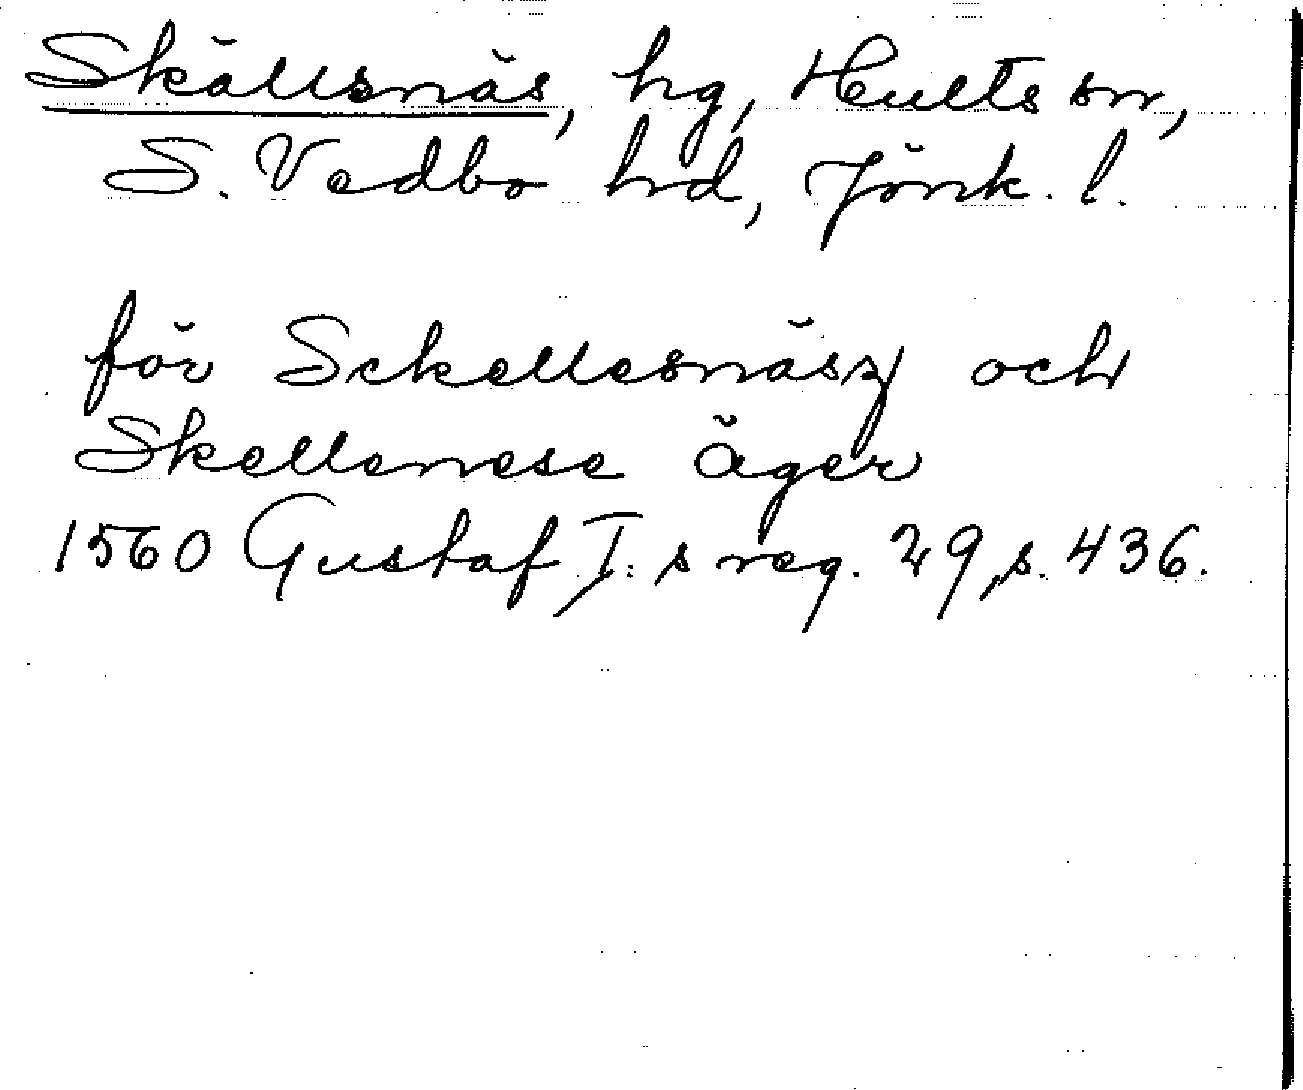 Skällsnäs, hg, Hults sn,
S. Vedbo hd, Jönk. l.
för Schellesnäsz och
Skellenese äger
1560 Gustaf I:s reg. 29, s. 436.